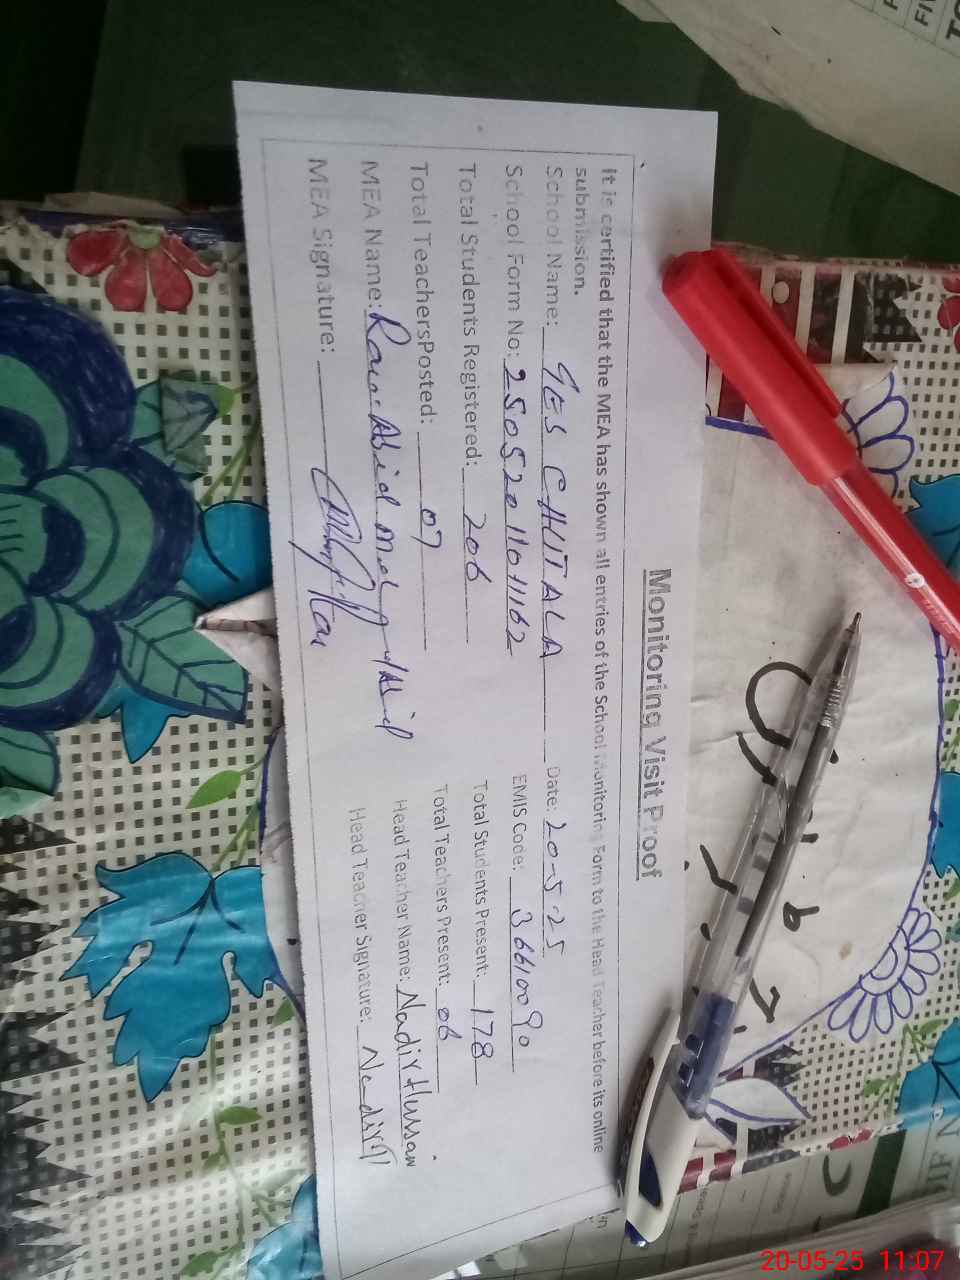 Monitoring Visit Proof
It is certified that the MEA has shown all entries of the School Monitoring Form to the Head Teacher before its online
submission.
School Name: GES CHITALA Date: 20-5-25
School Form No: 25052011011162 EMIS Code: 36610090
Total Students Registered: 206 Total Students Present: 178
Total TeachersPosted: 07 Total Teachers Present: 06
MEA Name: Abid Head Teacher Name: Nadir Hussain
MEA Signature: Head Teacher Signature: Nadir
20-05-25 11:07